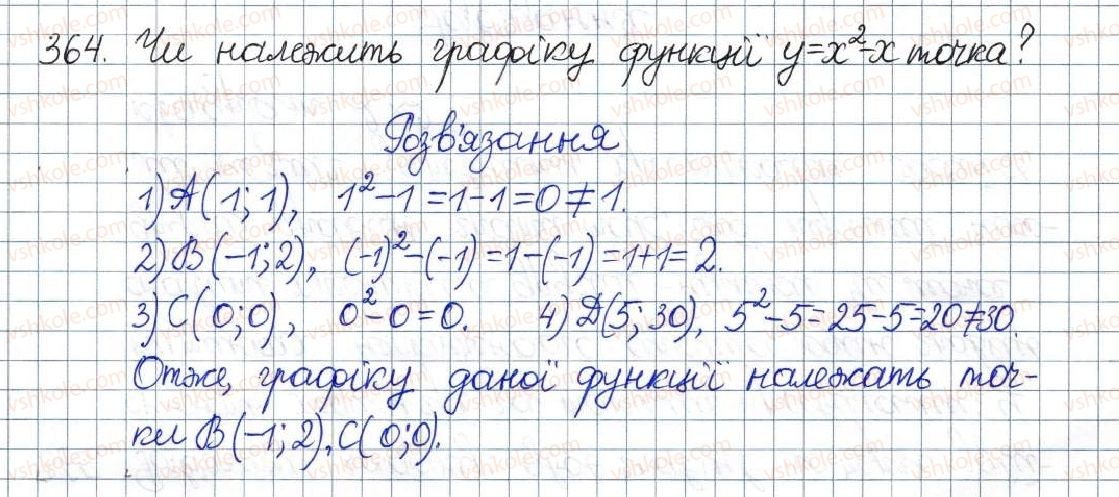 364. Чи належить графіку функції y=x²-x точка?
Розв'язання
1) А(1; 1), 1²-1=1-1=0≠1.
2) В(-1; 2), (-1)²-(-1)=1-(-1)=1+1=2.
3) С(0; 0), 0²-0=0. 4) Д(5; 30), 5²-5=25-5=20≠30.
Отже, графіку даної функції належать точ-
ки В(-1; 2), С(0; 0).